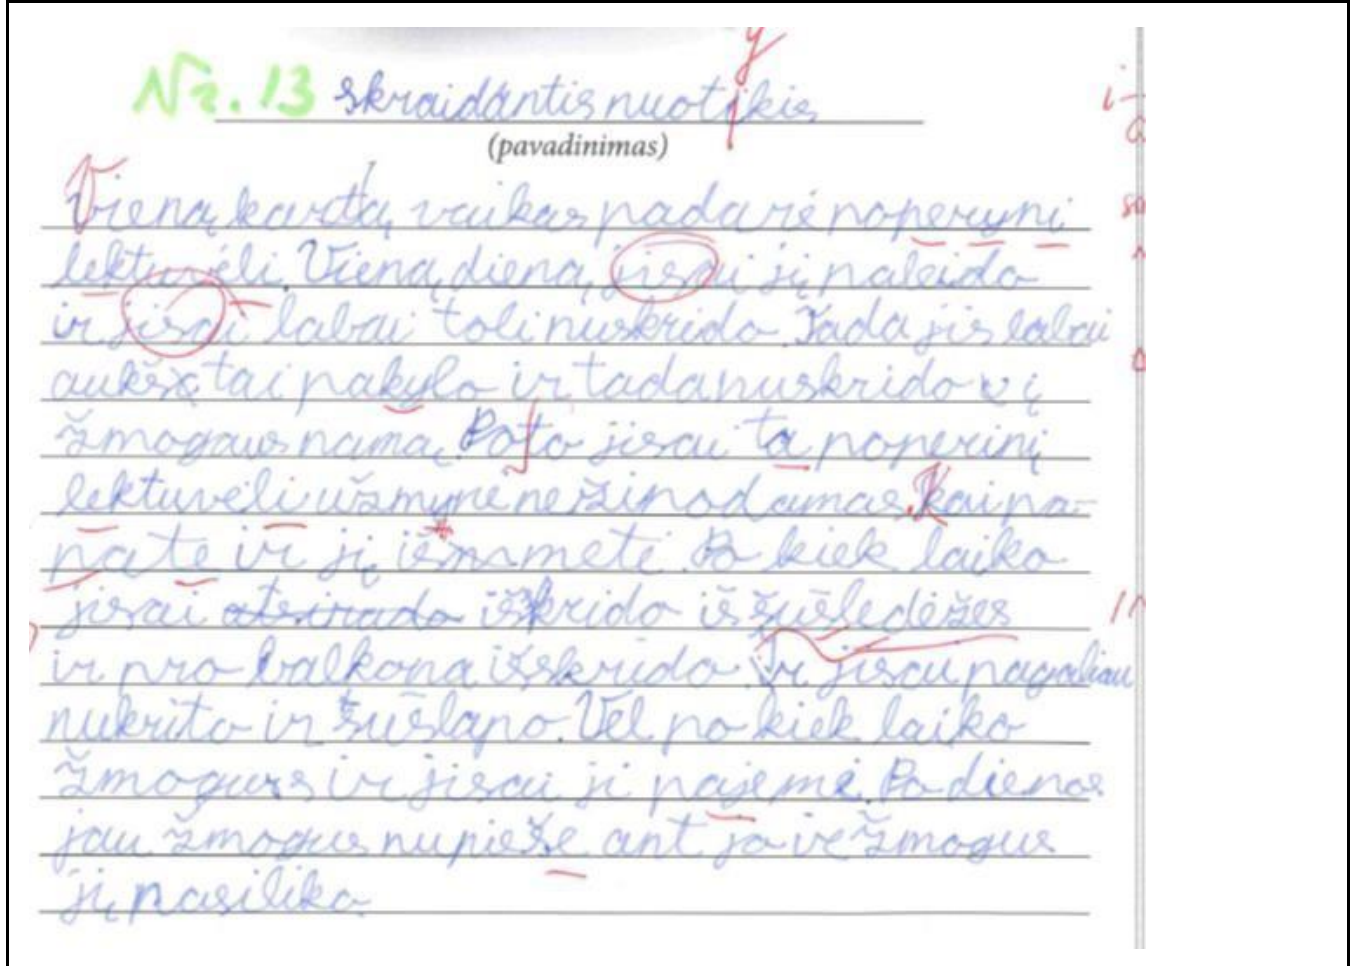 Nr. 13 skraidantis nuotikis
(pavadinimas)
Vieną kartą vaikas padarė poperynį
lektuvėli. Vieną dieną jisai jį paleido
ir jisai labai toli nuskrido. Tada jis labai
aukštai pakylo ir tada nuskrido į
žmogaus namą. Poto jisai ta poperinį
lektuvėli užmynė nežinodamas. Kai pa-
matė ir jį išmmeti. Po kiek laiko
jisai atsirado išskrido iš šiušledėžes
ir pro balkoną išskrido. Ir jisai pagaliau
nukrito ir sušlapo. Vėl po kiek laiko
žmogus ir jisai ji pajemė. Po dienos
jau žmogus nupieše ant jo žmogus
jį pasiliko.